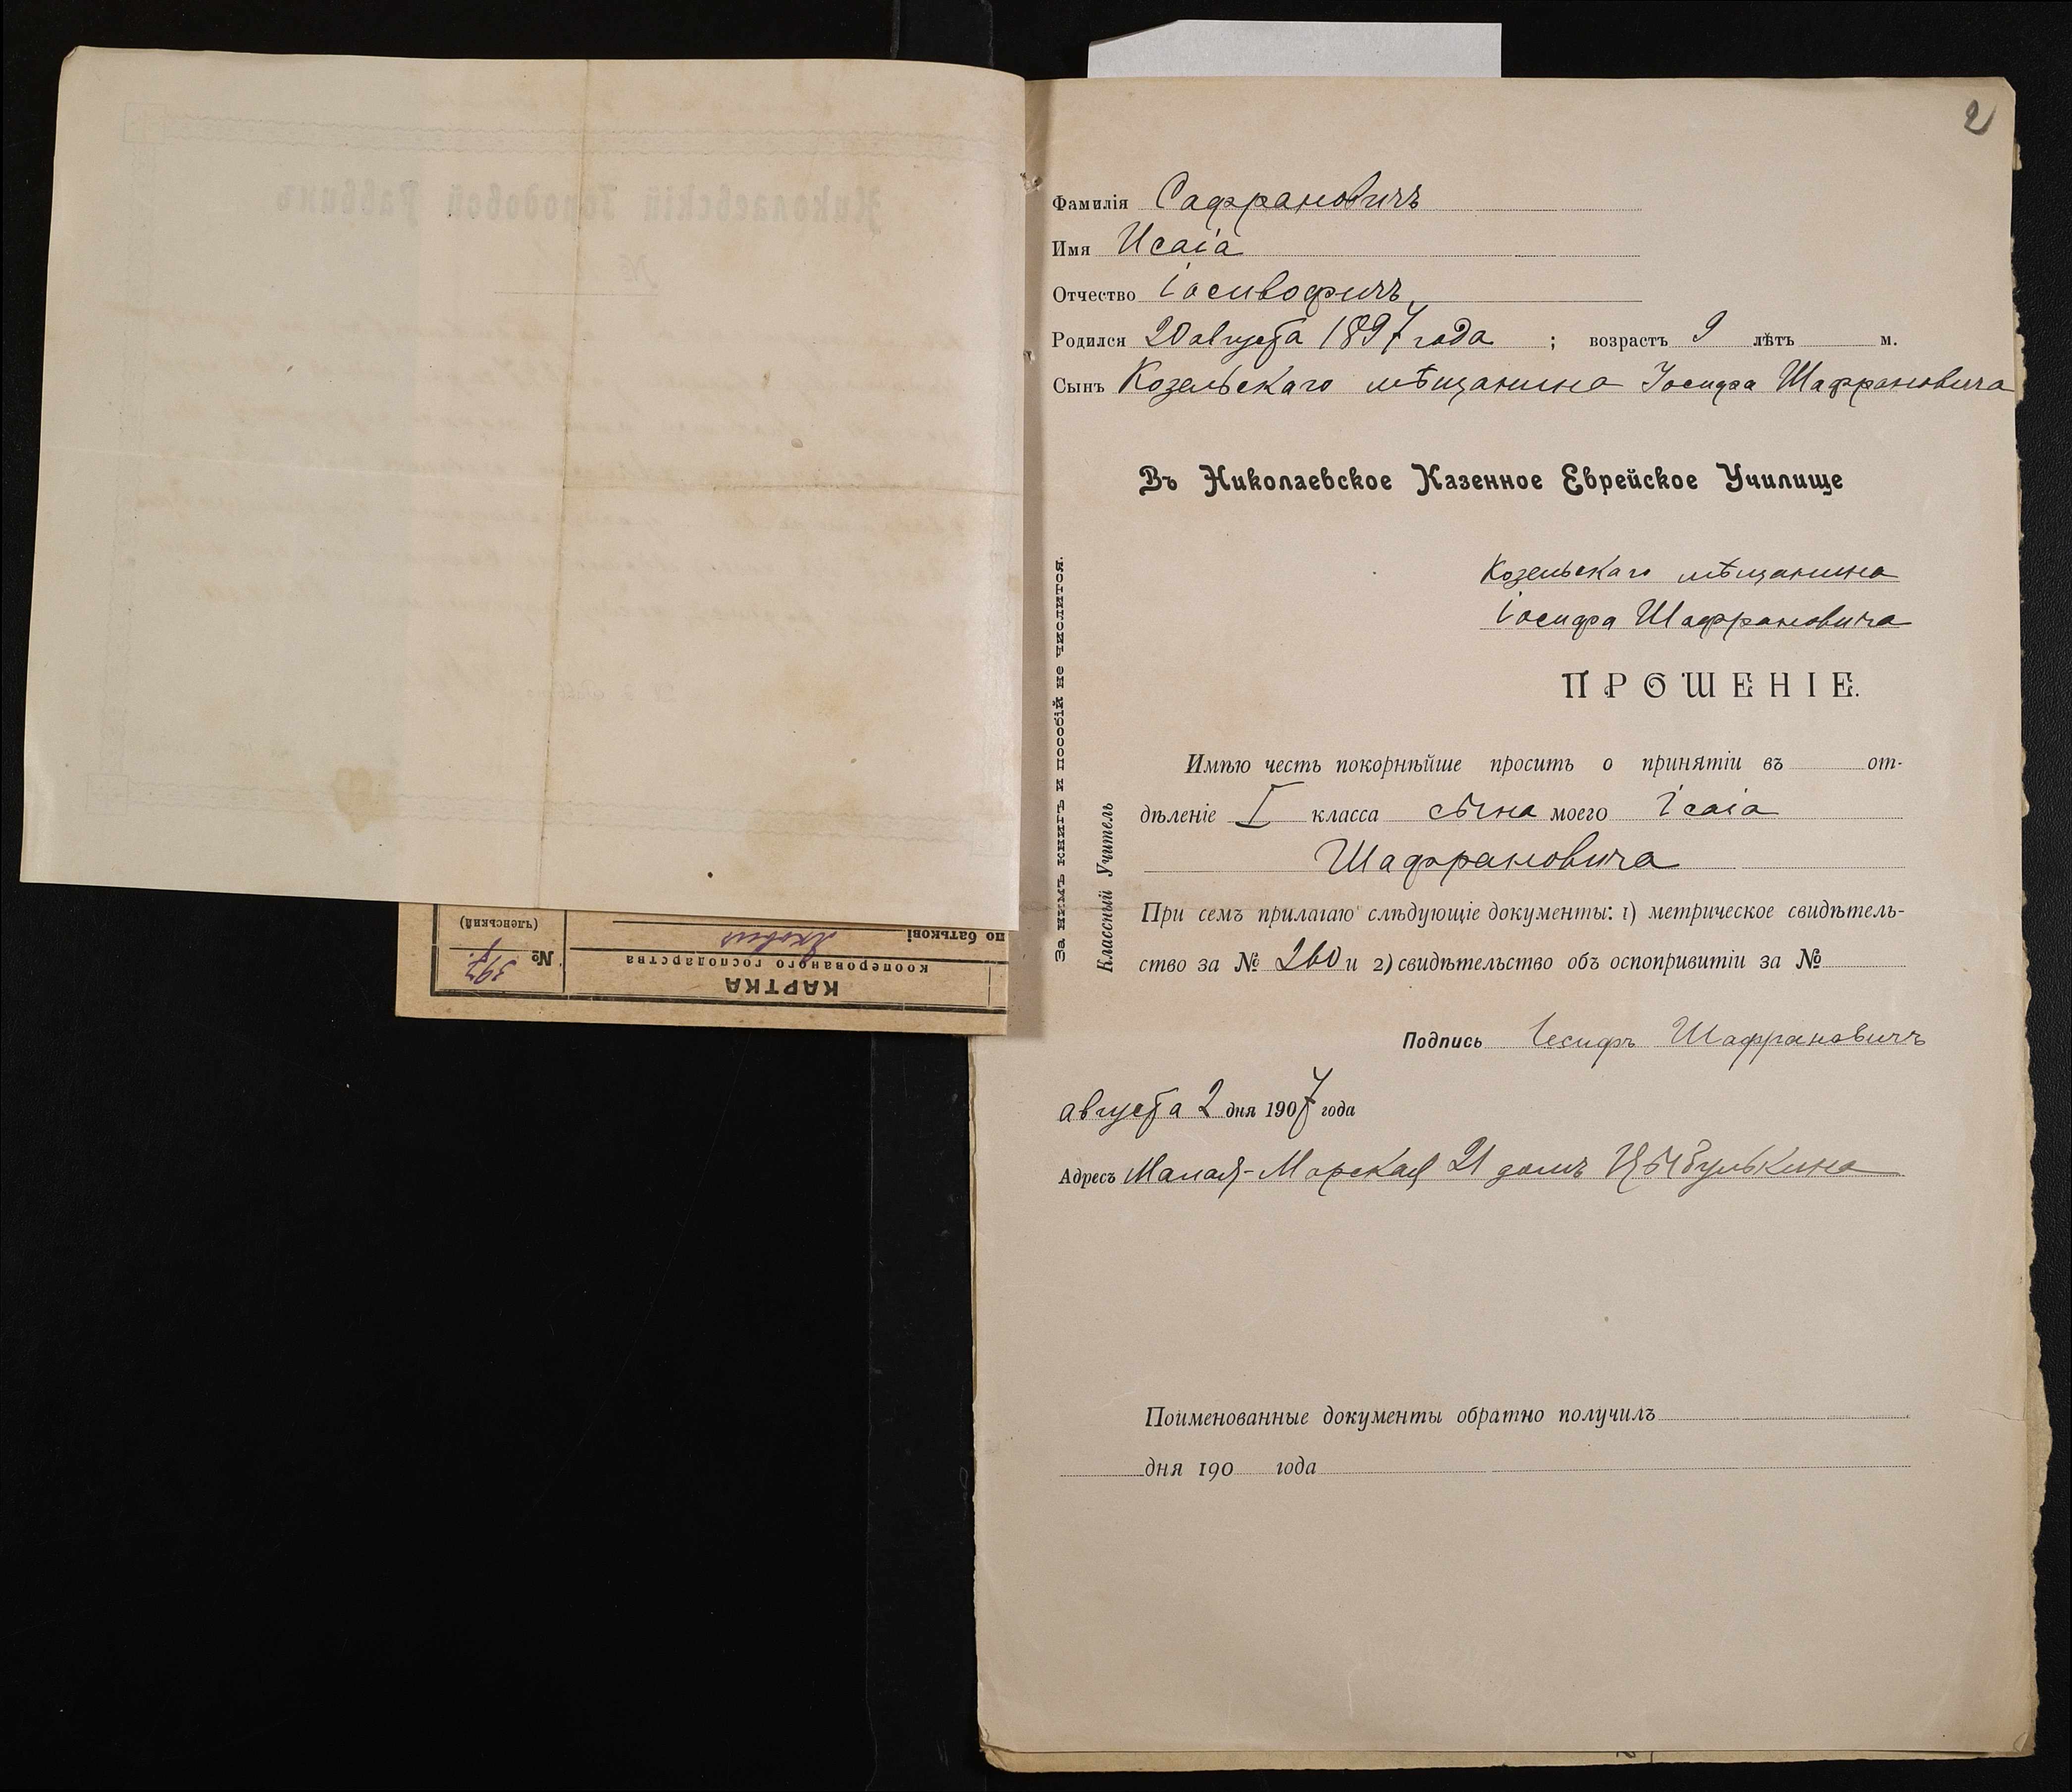 Николаевскій Городовой Раввинъ
№
КАРТКА
кооперованого господарства
№ 397
(членський)
по батькові
2
Фамилія Сафрановичъ
Имя Исаіа
Отчество Іосивофичъ
Родился 20 августа 1897 года ; возрастъ 9 лѣтъ м.
Сынъ Козельскаго мѣщанина Іосифа Шафрановича
Въ Николаевское Казенное Еврейское Училище
Козельскаго мѣщанина
Іосифа Шафрановича
ПРОШЕНІЕ.
Имѣю честь покорнѣйше просить о принятіи въ от-
дѣленіе I класса сына моего Ісаіа
Шафрановича
При семъ прилагаю слѣдующіе документы: 1) метрическое свидѣтель-
ство за № 260 и 2) свидѣтельство объ оспопривитіи за №
Подпись Іосифъ Шафрановичъ
августа 2 дня 1907 года
Адресъ Малая-Морская 21 домъ Цыбулькина
Поименованные документы обратно получилъ
дня 190 года
За нимъ книгъ и пособій не числится.
Классный Учитель